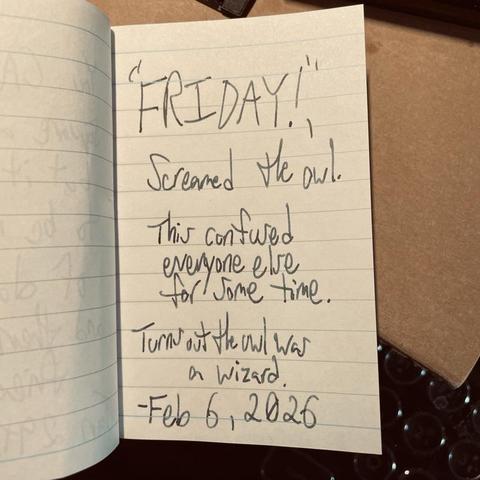 "FRIDAY!"
Screamed the owl.
This confused
everyone else
for some time.
Turns out the owl was
a wizard.
-Feb 6, 2026